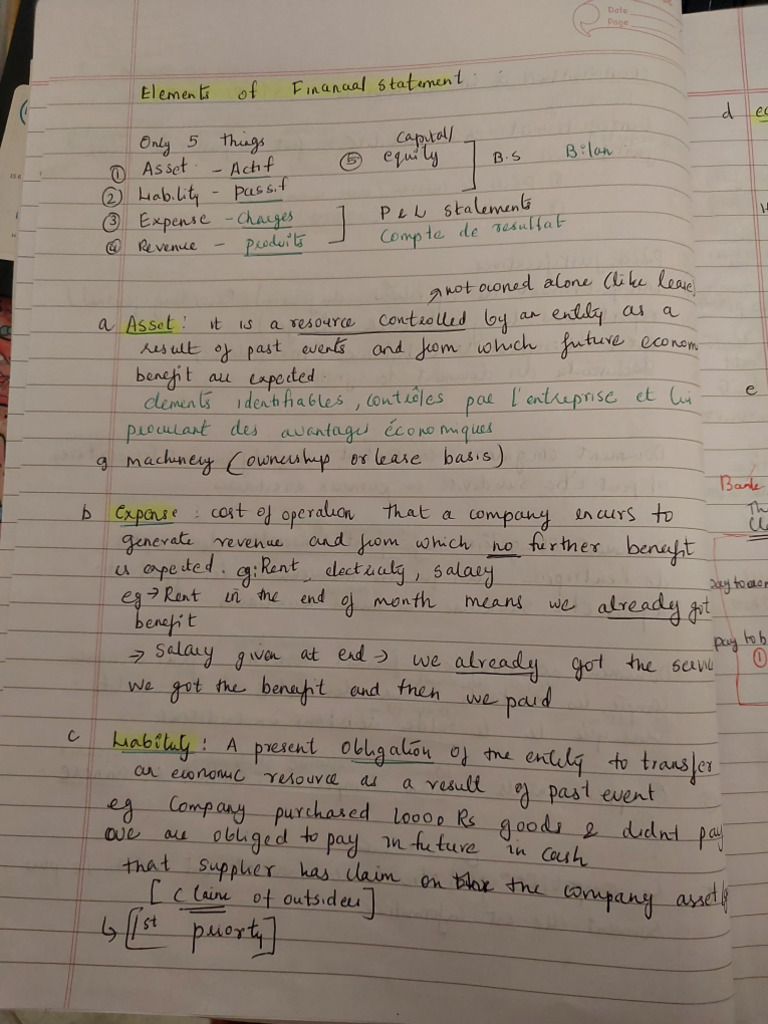 Date
Page
Elements of Financial Statement
Only 5 Things
① Asset - Actif
② Liability - passif
③ Expense - Charges
④ Revenue - produits
⑤ capital/
equity
B.S Bilan
P & L Statements
Compte de resultat
→ not owned alone (like lease
a Asset : it is a resource controlled by an entity as a
result of past events and from which future econom
benefit are expected.
elements identifiables, contrôles par l'entreprise et lui
procurant des avantages économiques
eg machinery (ownership or lease basis)
b Expense : cost of operation that a company incurs to
generate revenue and from which no further benefit
is expected. eg: Rent, electricity, salary
eg → Rent in the end of month means we already got
benefit
⇒ Salary given at end → we already got the servi
we got the benefit and then we paid
c Liability : A present obligation of the entity to transfer
an economic resource as a result of past event
eg Company purchased 10000 Rs goods & didnt pay
we are obliged to pay in future in cash
that supplier has claim on the company asset
[Claim of outsider]
↳ [1st priorty]
d
e
Bank
Th
pay to b
①